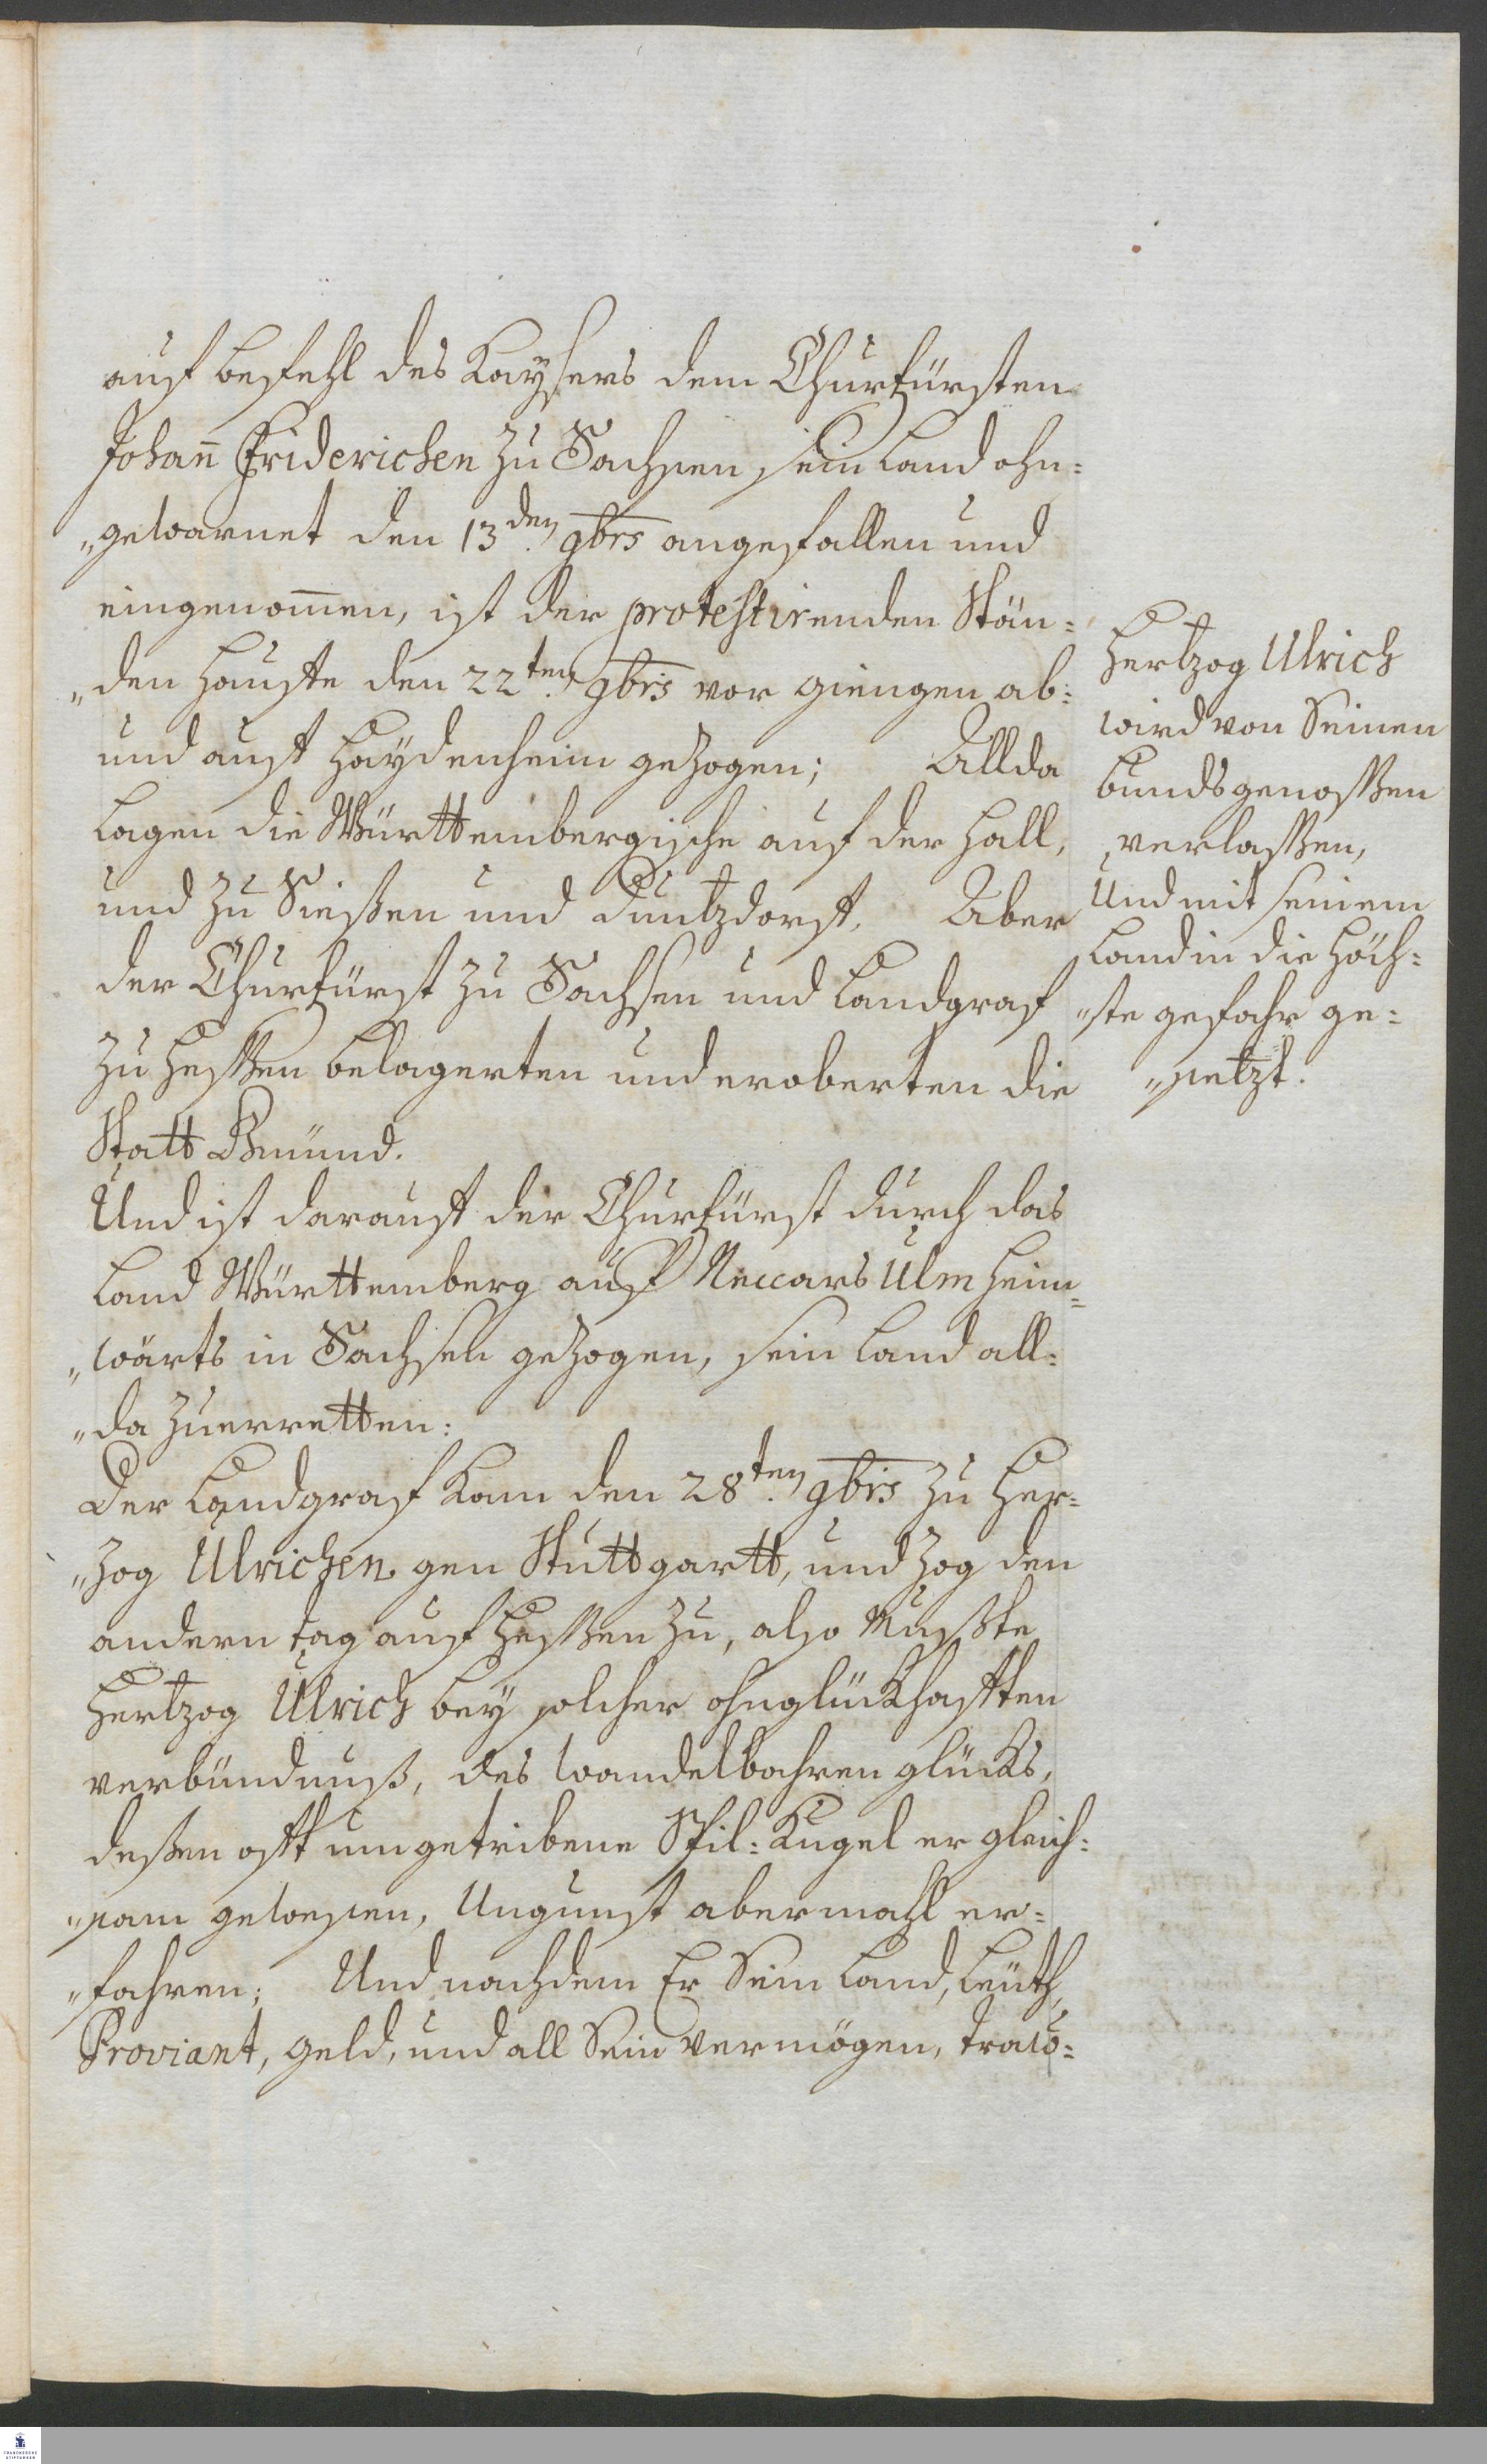 auf Befehl des Kaysers dem Churfürsten
Johañ Friderichen zu Sachsen sein Land ohn=
„gewarnet den 13den. 9brs angefallen und
eingenom̄en, ist der protestirenden Stän=
„den Hauffe den 22ten. 9bris vor Giengen ab=
und auff Haydenheim gezogen; Allda
Lagen die Württembergische auf der Hall,
und zu Sießen und Duntzdorff. Aber
der Churfürst zu Sachsen und Landgraf
zu Heßen belagerten und eroberten die
Statt Gmünd.
Und ist darauff der Churfürst durch das
Land Württemberg auf Neccars Ulm heim=
„wärts in Sachsen gezogen, sein Land all=
„da zuerretten:
Der Landgraf kam den 28ten. 9bris zu Her=
„zog Ulrichen gen Stuttgartt, und zog den
andern tag auf Heßen zu, also Mußte
Hertzog Ulrich bey solcher ohnglückhafften
verbündnuß, des wandelbahren glücks,
deßen offt umgetribene Spil=Kugel er gleich=
„sam gewesen, Ungunst abermahl er=
„fahren; Und nachdem Er Sein Land, Leuth,
Proviant, Geld, und all Sein vermögen,
Hertzog Ulrich
wird von Seinen
bundsgenoßen
verlaßen,
Und mit seinem
Land in die Höch=
„ste gefahr ge=
„setzt.
FRANCKESCHE
STIFTUNGEN